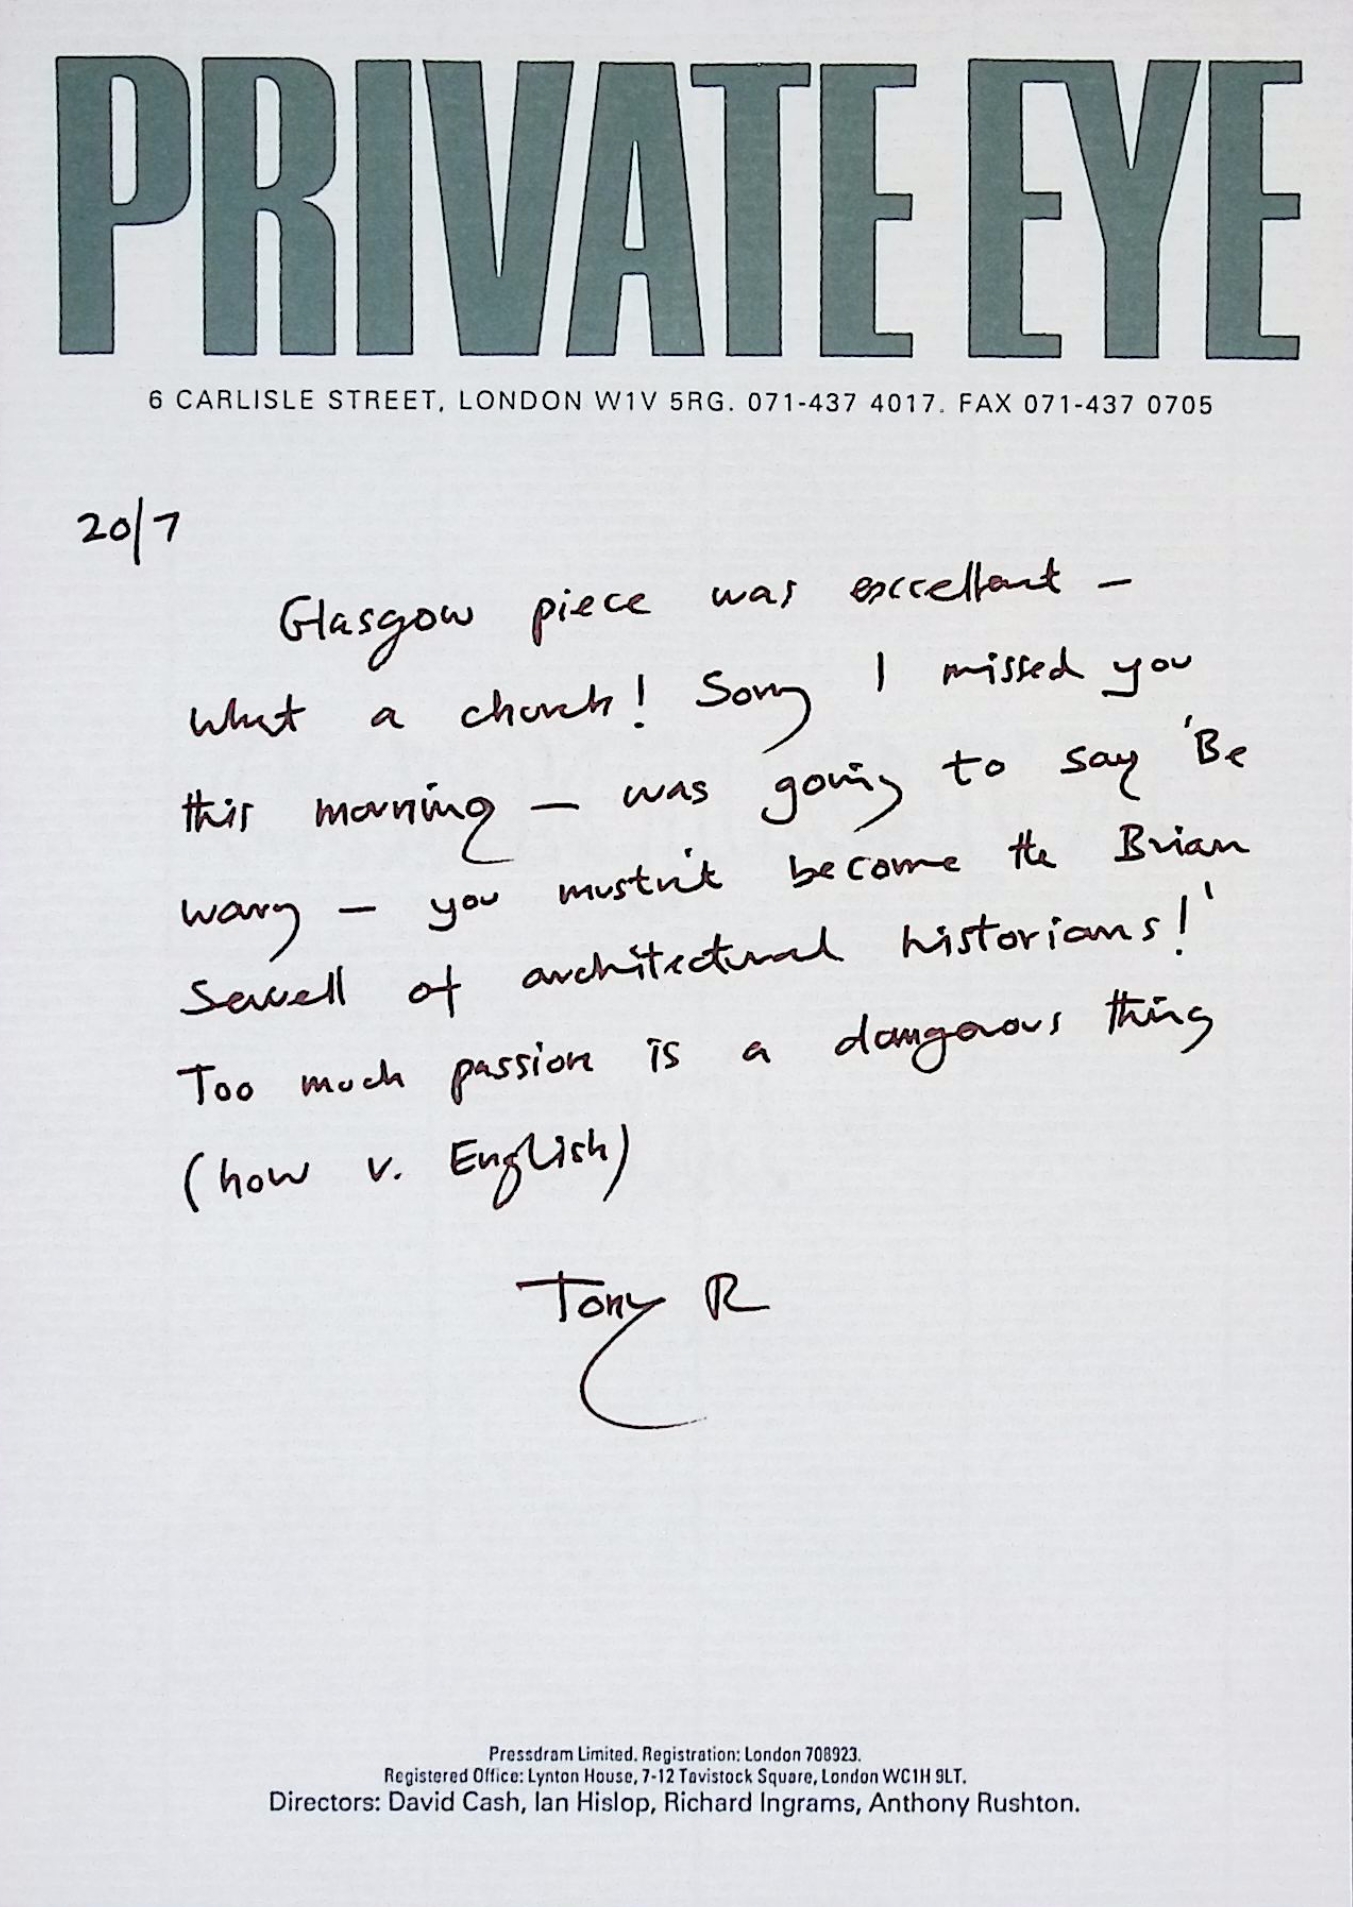 PRIVATE EYE
6 CARLISLE STREET, LONDON W1V 5RG. 071-437 4017. FAX 071-437 0705
20/7
Glasgow piece was excellent —
what a church! Sorry I missed you
this morning — was going to say 'Be
wary — you mustn't become the Brian
Sewell of architectural historians!'
Too much passion is a dangerous thing
(how v. English)
Tony R
Pressdram Limited. Registration: London 708923.
Registered Office: Lynton House, 7-12 Tavistock Square, London WC1H 9LT.
Directors: David Cash, Ian Hislop, Richard Ingrams, Anthony Rushton.